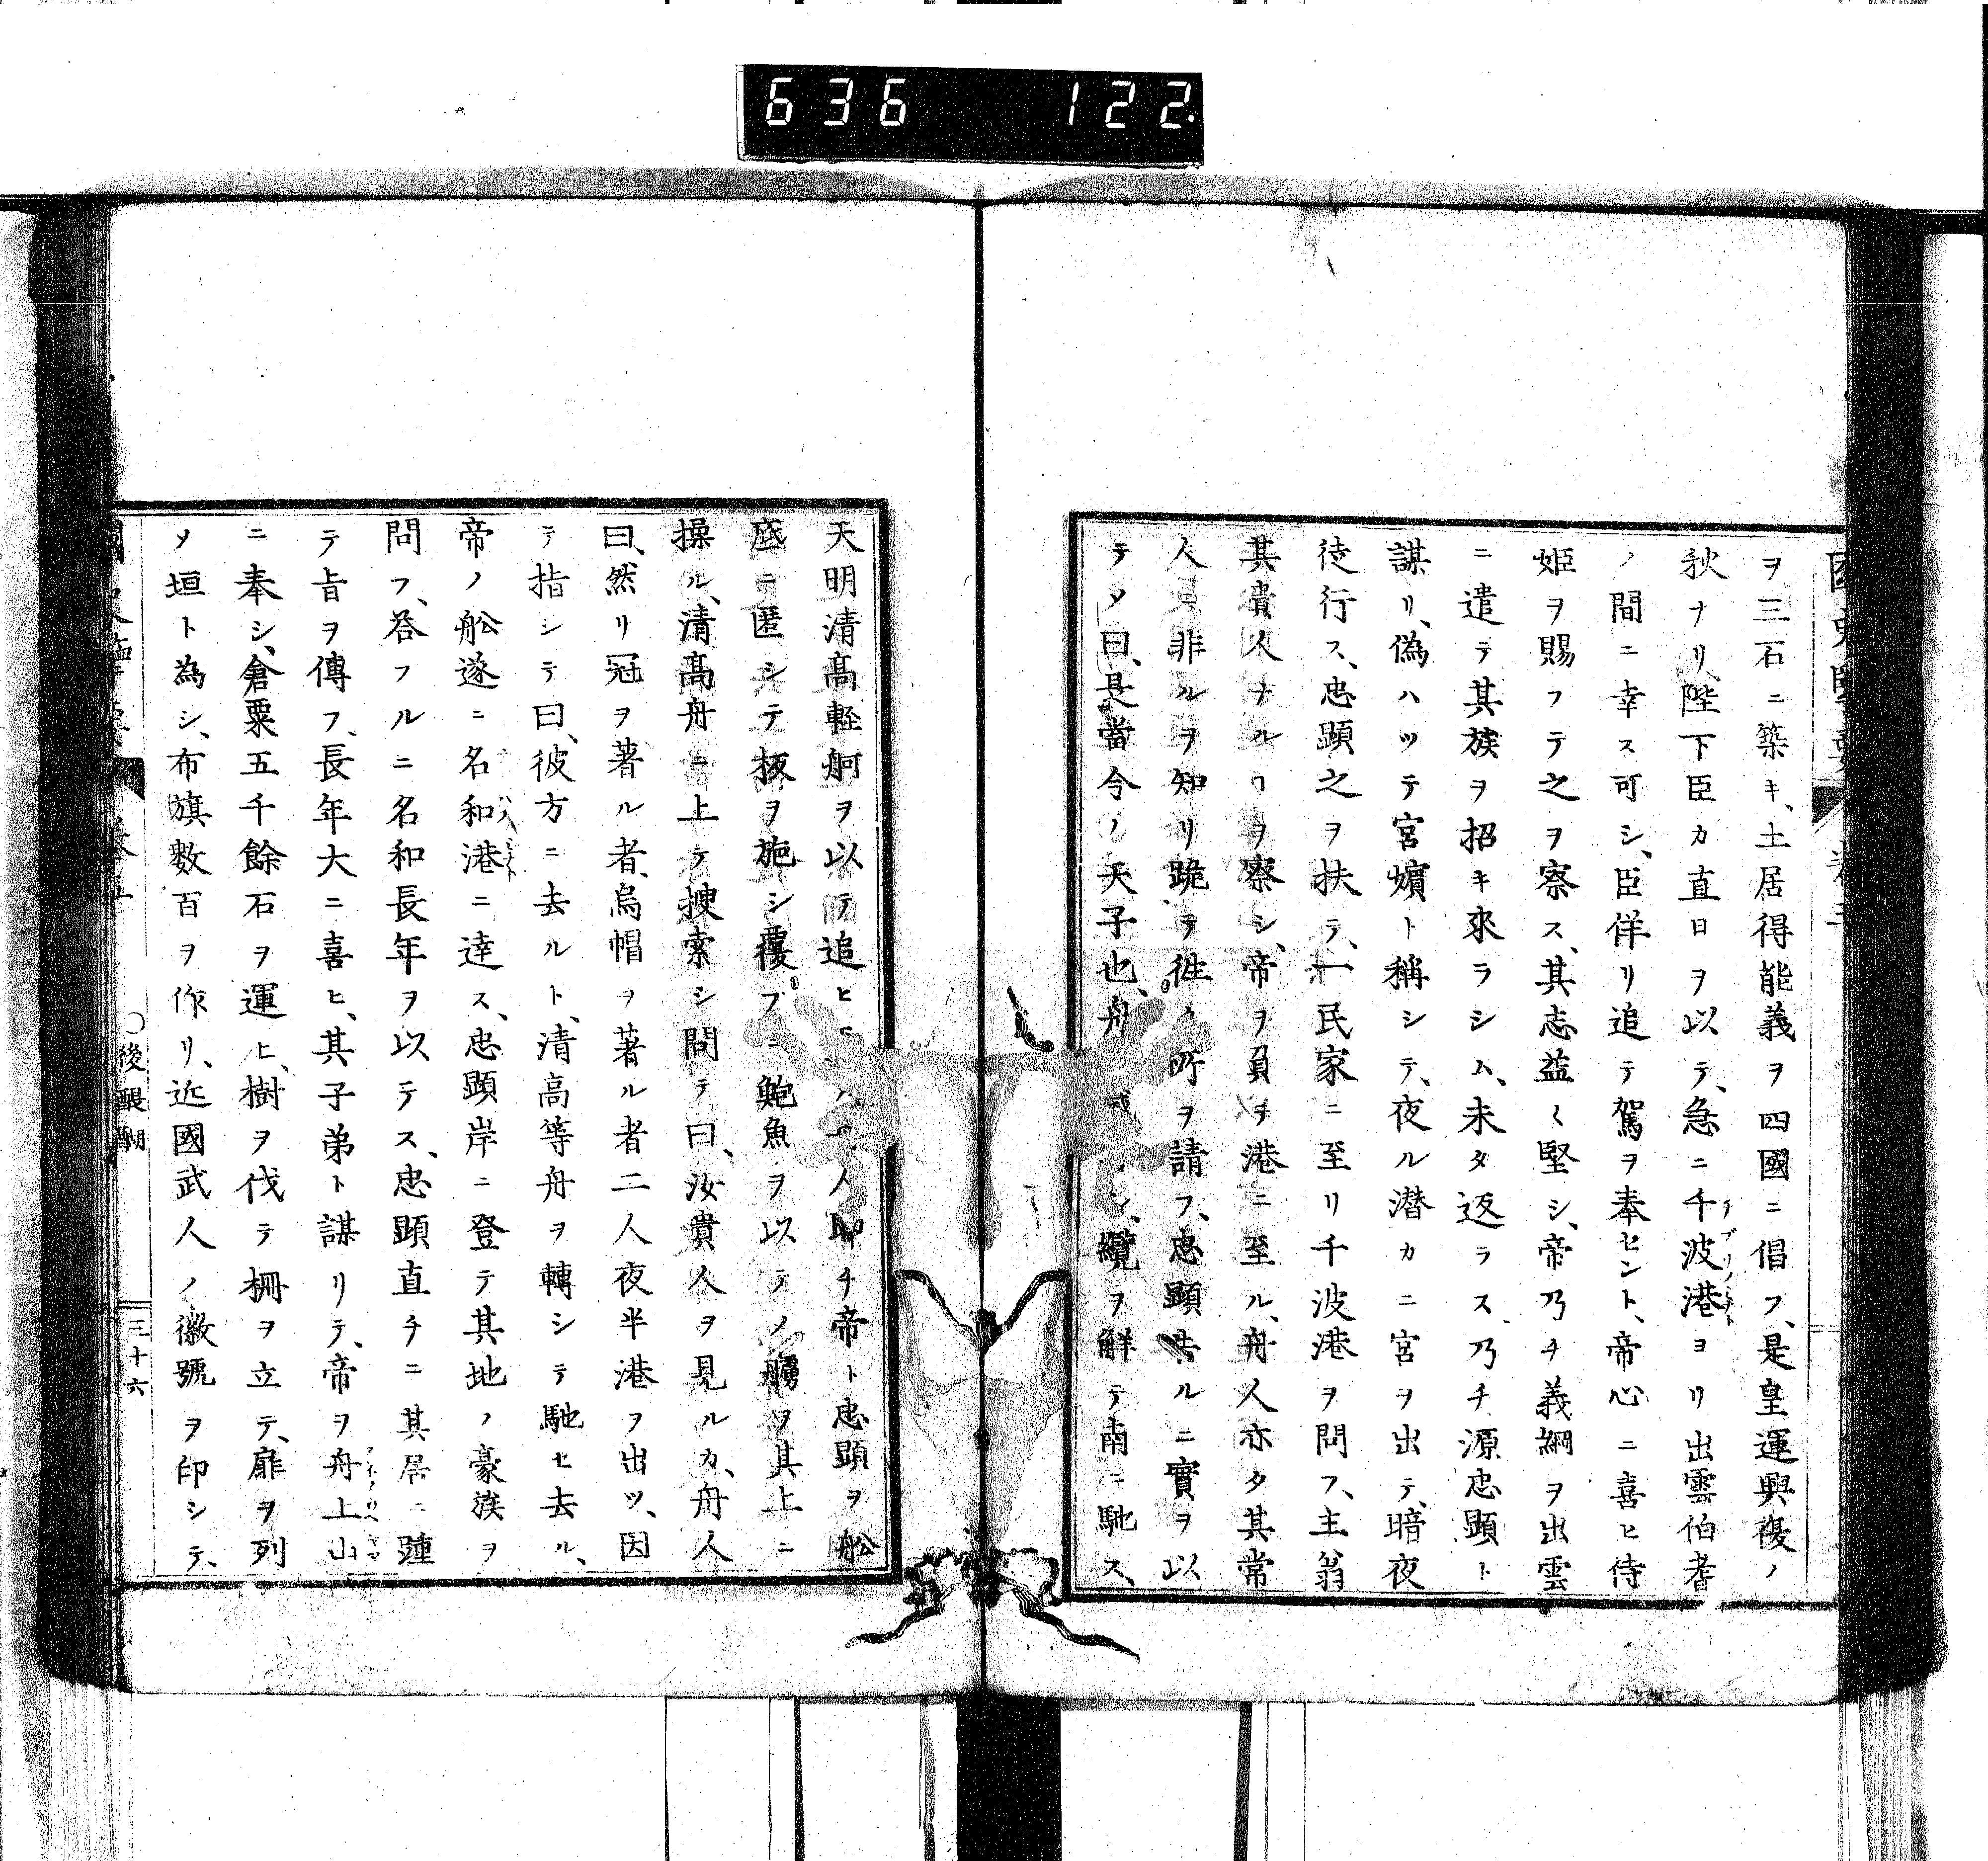 636 122
ヲ三石ニ築キ、土居得能義ヲ四國ニ倡フ、是皇運興復ノ
秋ナリ陛下臣カ直日ヲ以テ、急ニ千波港ヨリ出雲伯耆
ノ間ニ幸ス可シ、臣佯リ追テ駕ヲ奉セント、帝心ニ喜ヒ侍
姫ヲ賜フテ之ヲ察ス、其志益〱堅シ、帝乃チ義綱ヲ出雲
ニ遣テ其族ヲ招キ來ラシム、未タ返ラス、乃チ源忠顕ト
謀リ、偽ハツテ宮嬪ト稱シテ、夜ル潜カニ宮ヲ出テ、暗夜
徒行ス、忠顕之ヲ扶テ、一民家ニ至リ千波港ヲ問フ、主翁
其貴人ナルヿヲ察シ、帝ヲ負テ港ニ至ル、舟人亦タ其常
人ニ非ルヲ知リ跪テ徃ク所ヲ請フ、忠顕告ルニ實ヲ以
テメ曰、是當今ノ天子也、舟 纜ヲ解テ南ニ馳ス、
天明清高軽舸ヲ以テ追ヒ 人即チ帝ト忠顕ヲ舩
底ニ匿シテ板ヲ施シ覆フニ鮑魚ヲ以テノ艣ヲ其上ニ
操ル、清高舟ニ上テ捜索シ問テ曰、汝貴人ヲ見ルカ、舟人
曰、然リ冠ヲ著ル者、烏帽ヲ著ル者二人夜半港ヲ出ツ、因
テ指シテ曰、彼方ニ去ルト、清高等舟ヲ轉シテ馳セ去ル、
帝ノ舩遂ニ名和港ニ達ス、忠顕岸ニ登テ其地ノ豪族ヲ
問フ、答フルニ名和長年ヲ以テス、忠顕直チニ其居ニ踵
テ旨ヲ傳フ、長年大ニ喜ヒ、其子弟ト謀リテ、帝ヲ舟上山
ニ奉シ、倉粟五千餘石ヲ運ヒ、樹ヲ伐テ柵ヲ立テ、扉ヲ列
ノ垣ト為シ、布旗数百ヲ作リ、近國武人ノ徽號ヲ印シテ、
〇後醍醐
三十六